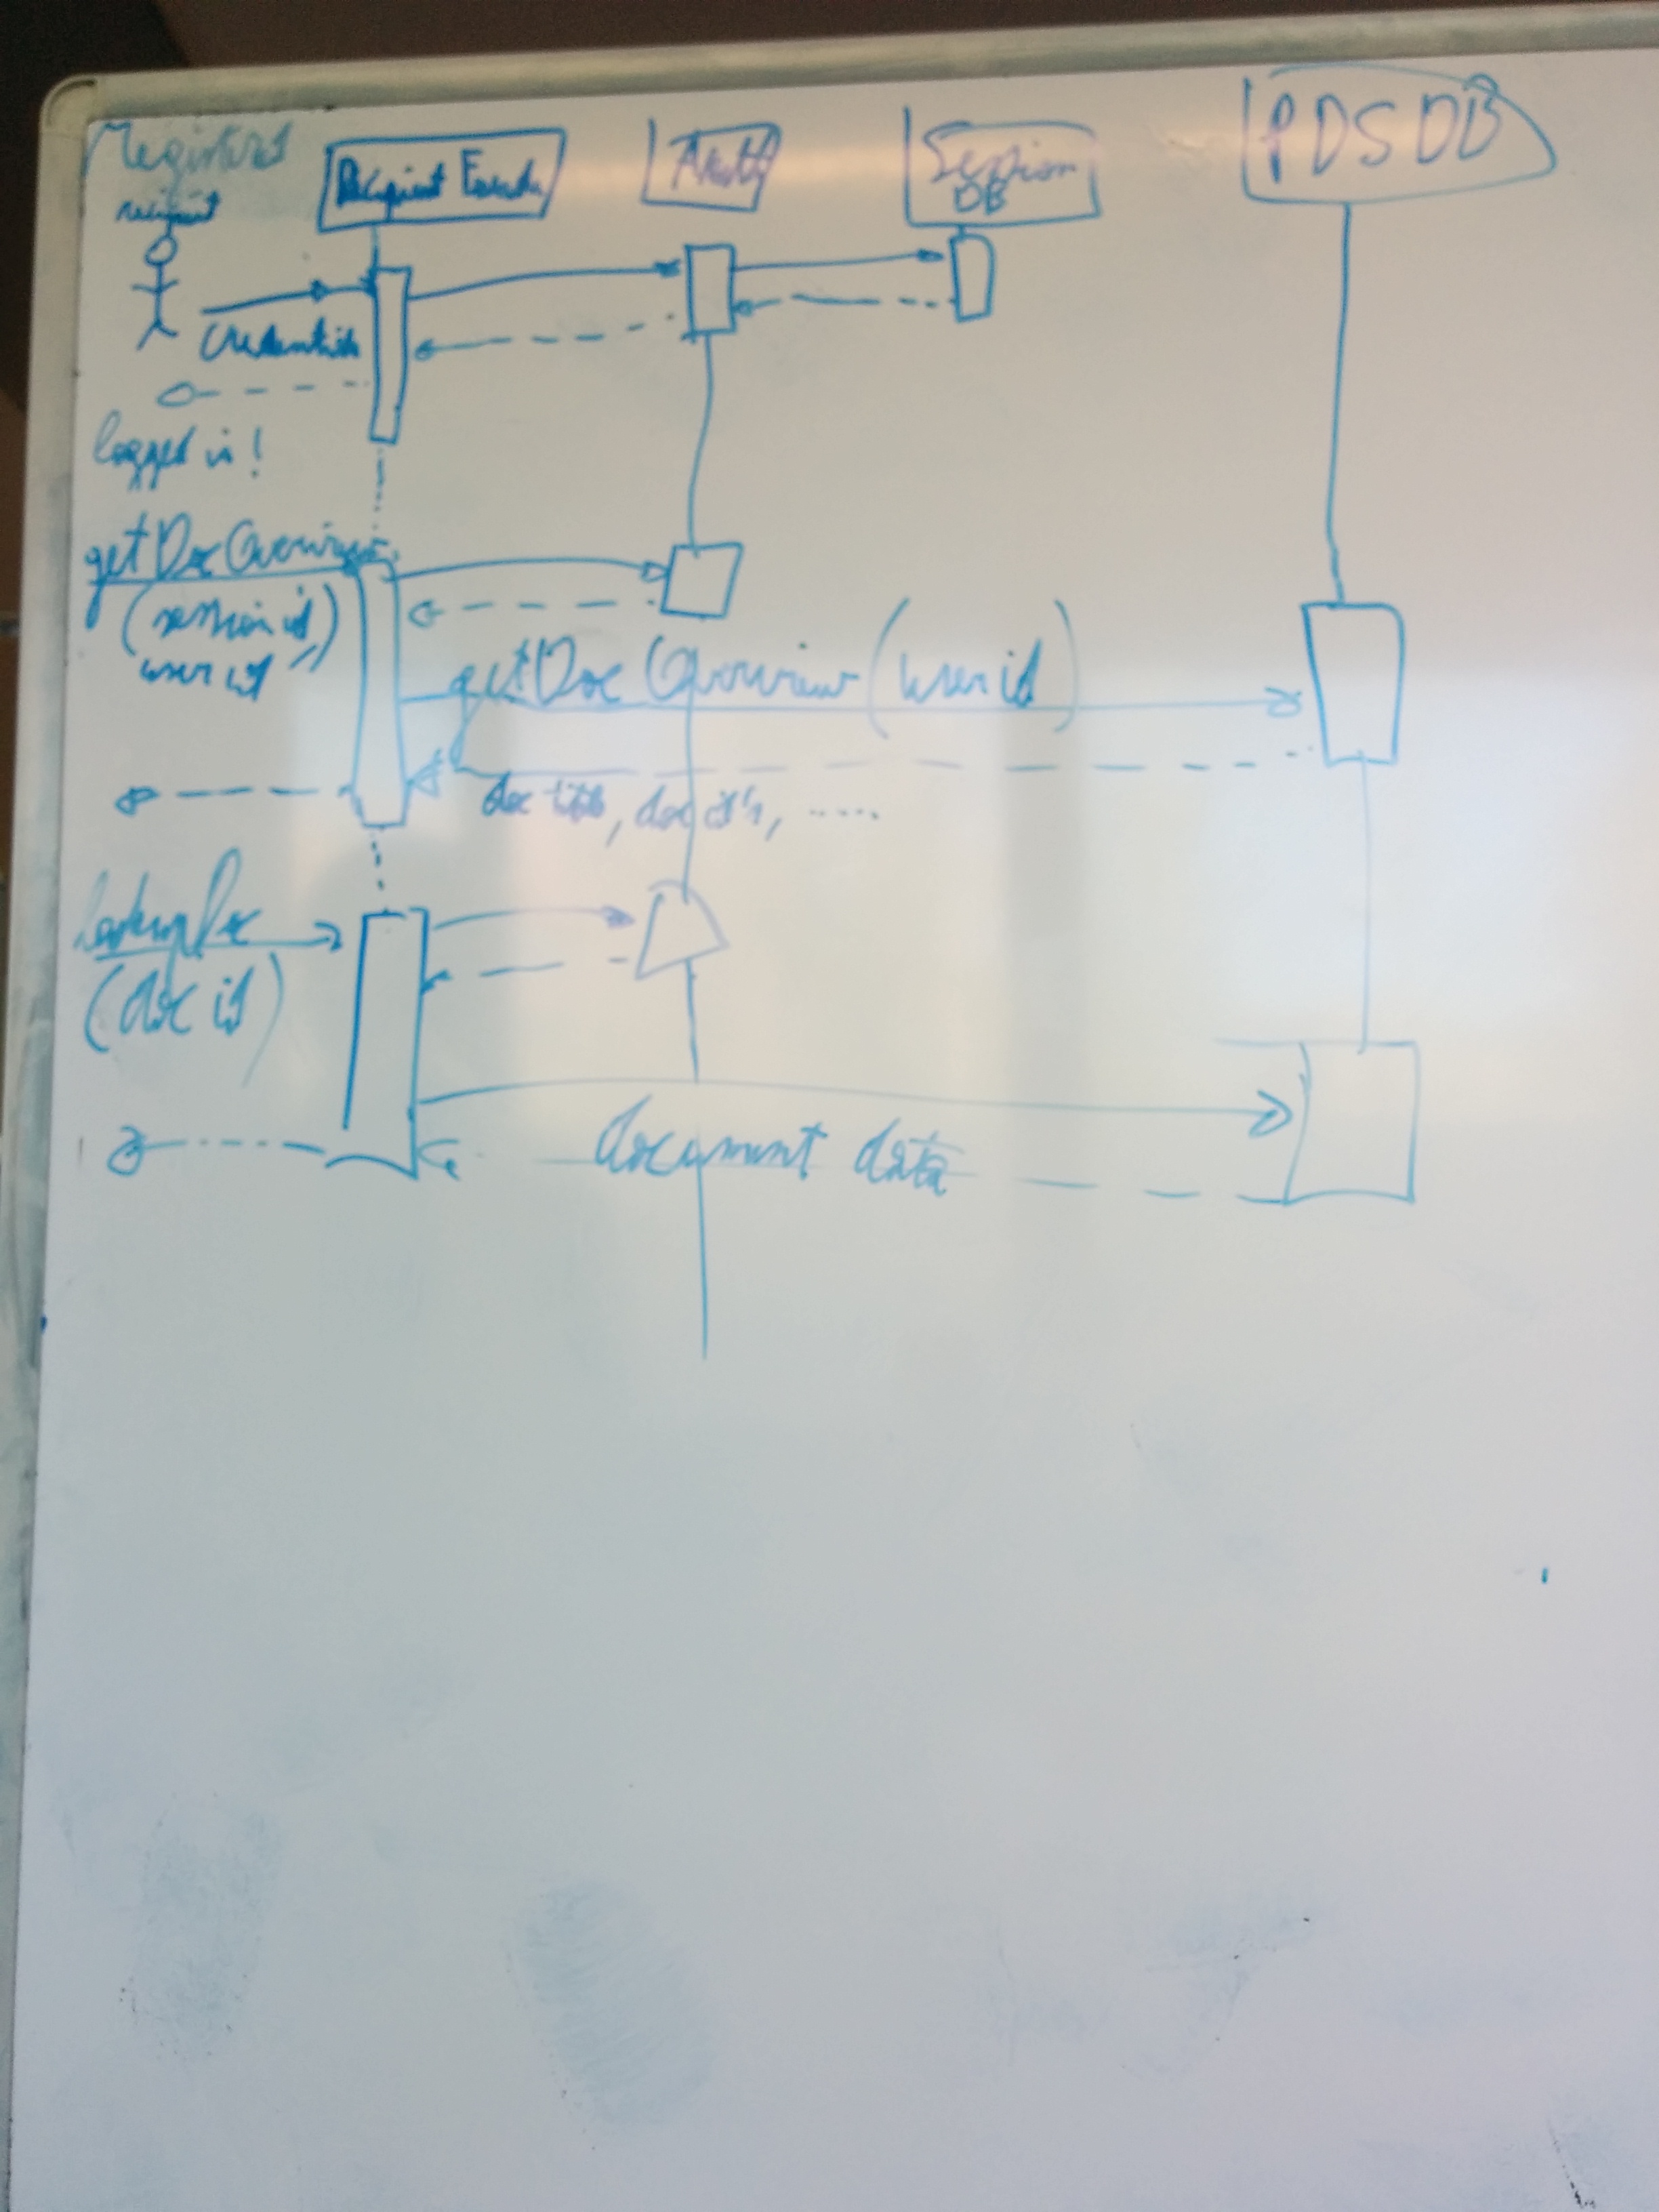 Registered
recipient
Recipient
Auth
Session
DB
PDS DB
Credentials
logged in!
getDocOverview
(session id,
user id)
getDoc Overview (user id)
doc titles, doc id's, .....
(doc id)
document data